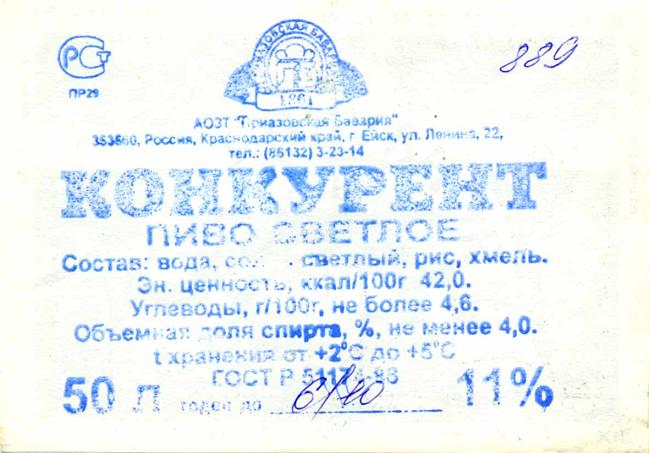 889
ПР29
АОЗТ "Приазовская Бавария"
353660, Россия, Краснодарский край, г. Ейск, ул. Ленина, 22,
тел.: (86132) 3-23-14
КОНКУРЕНТ
ПИВО СВЕТЛОЕ
Состав: вода, светлый, рис, хмель.
Эн. ценность, ккал/100г 42,0.
Углеводы, г/100г, не более 4,6.
Объемная доля спирта, %, не менее 4,0.
t хранения от +2°С до +5°С
ГОСТ Р
50 л годен до 6/10 11%